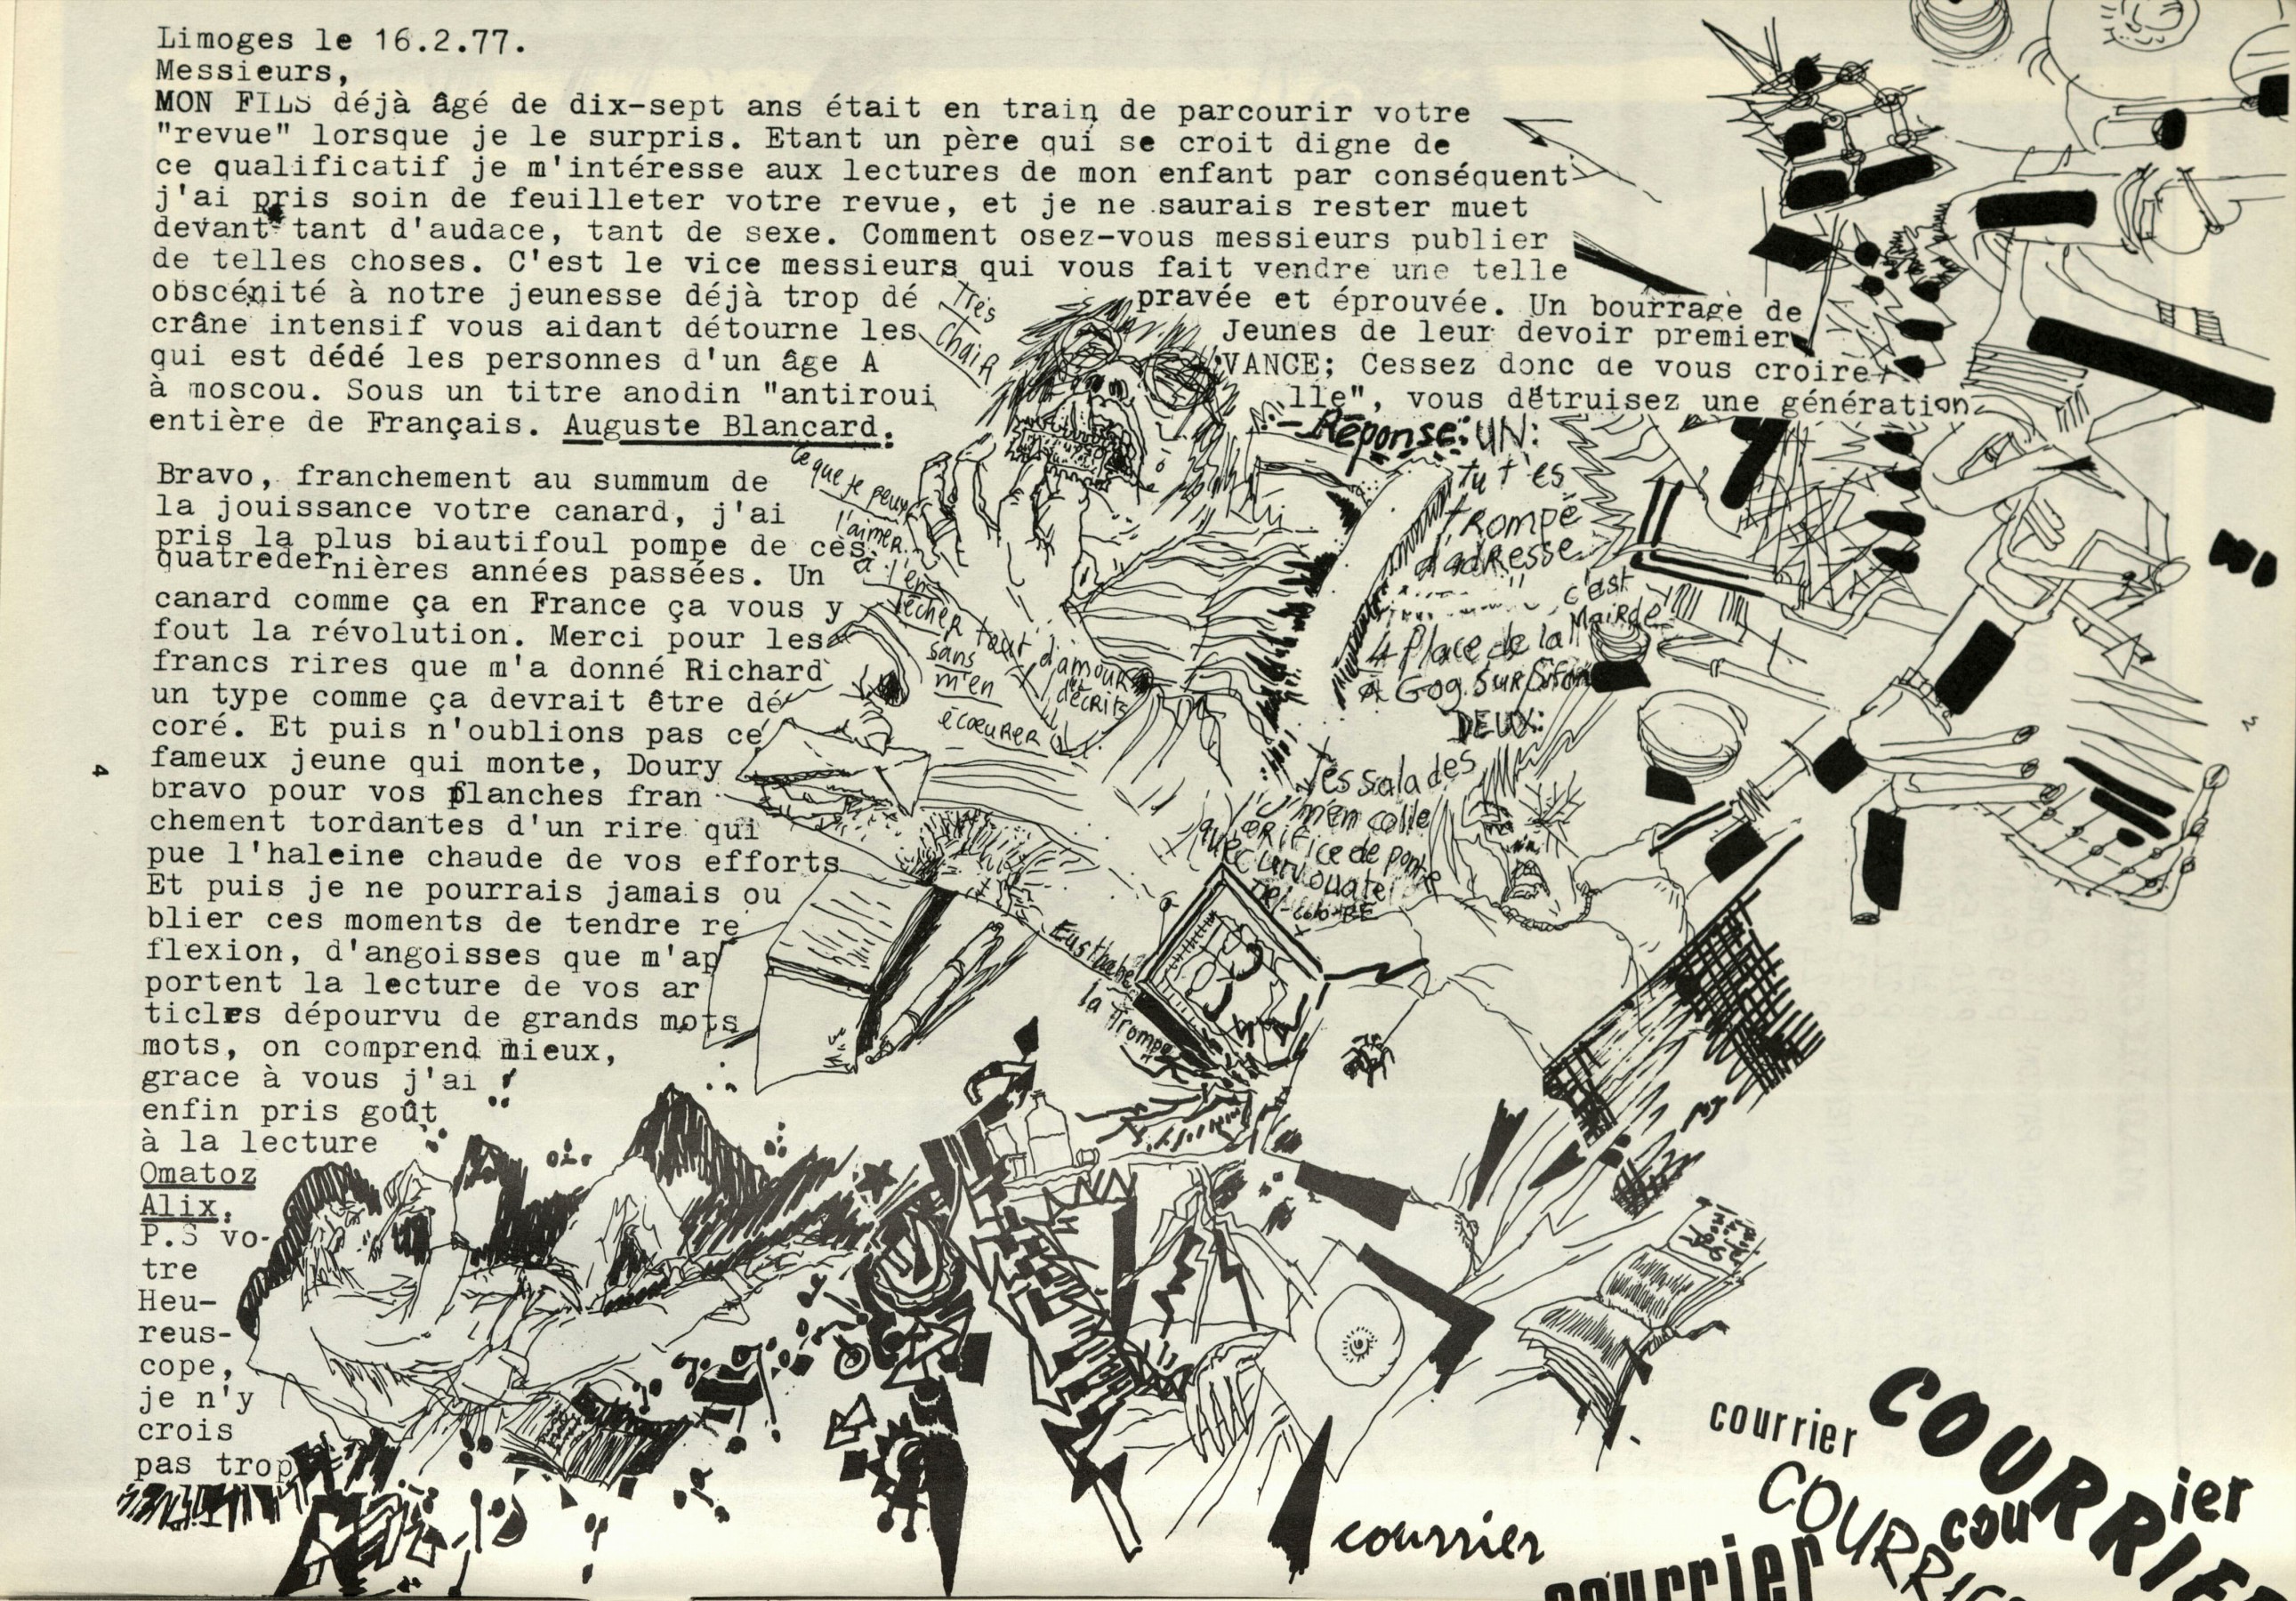 Limoges le 16.2.77.
Messieurs,
MON FILS déjà âgé de dix-sept ans était en train de parcourir votre
"revue" lorsque je le surpris. Etant un père qui se croit digne de
ce qualificatif je m'intéresse aux lectures de mon enfant par conséquent
j'ai pris soin de feuilleter votre revue, et je ne saurais rester muet
devant tant d'audace, tant de sexe. Comment osez-vous messieurs publier
de telles choses. C'est le vice messieurs qui vous fait vendre une telle
obscénité à notre jeunesse déjà trop dé pravée et éprouvée. Un bourrage de
crâne intensif vous aidant détourne les Jeunes de leur devoir premier
qui est dédé les personnes d'un âge A VANCE; Cessez donc de vous croire
à moscou. Sous un titre anodin "antiroui lle", vous détruisez une génération
entière de Français. Auguste Blancard.
Bravo, franchement au summum de
la jouissance votre canard, j'ai
pris la plus biautifoul pompe de ces
quatredernières années passées. Un
canard comme ça en France ça vous y
fout la révolution. Merci pour les
francs rires que m'a donné Richard
un type comme ça devrait être dé
coré. Et puis n'oublions pas ce
fameux jeune qui monte, Doury
bravo pour vos planches fran
chement tordantes d'un rire qui
pue l'haleine chaude de vos efforts
Et puis je ne pourrais jamais ou
blier ces moments de tendre re
flexion, d'angoisses que m'ap
portent la lecture de vos ar
ticles dépourvu de grands mots
mots, on comprend mieux,
grace à vous j'ai
enfin pris goût
à la lecture
Omatoz
Alix.
P.S vo-
tre
Heu-
reus-
cope,
je n'y
crois
pas trop
4
Très
Chair
Ce que je peux
l'aimer.
à l'en
lécher tout
sans
m'en
écoeurer
d'amour
d'écrits
Réponse: UN:
tu t'es
trompé
d'adresse
c'est
4 Place de la Mairde
à Gog sur
DEUX:
tes salades
j'm'en colle
orifice de
Eusthabe
la Trompe
courrier
COURRIER
courrier
COURRIE
courrier
courrier